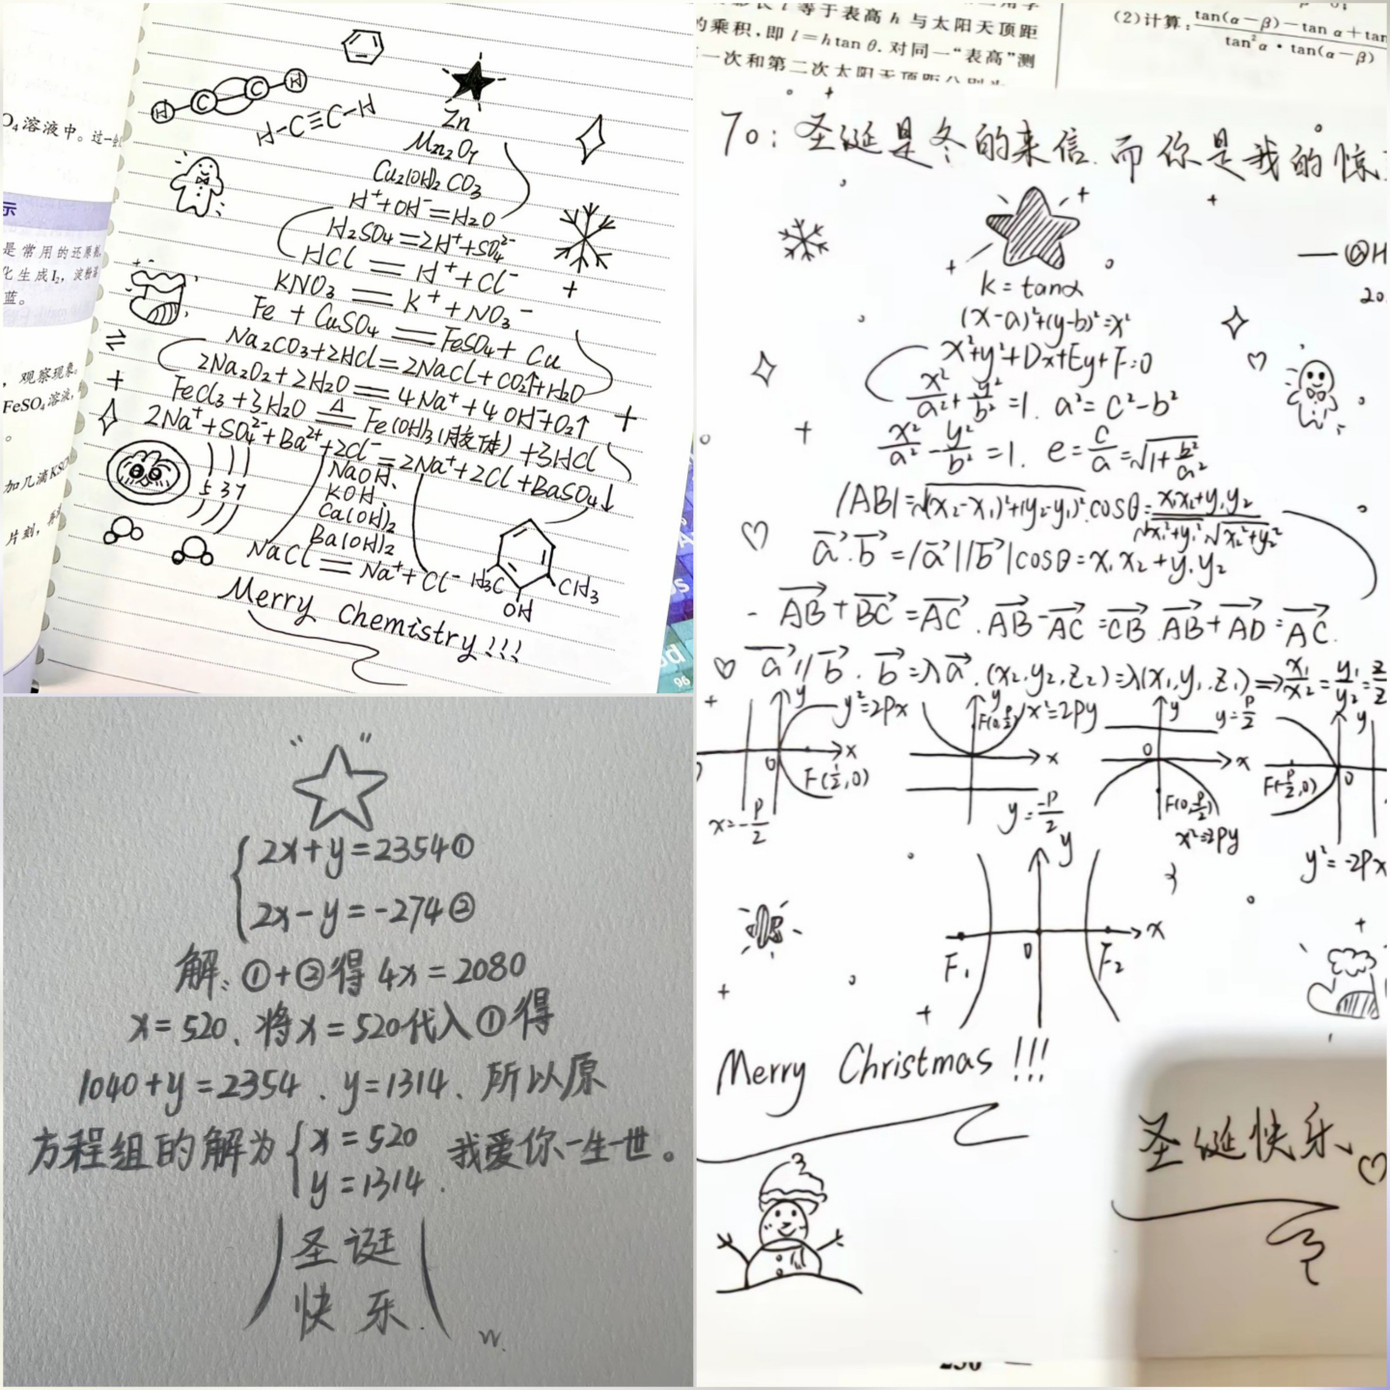 O₄溶液中。过一会
示
是常用的还原剂
化生成I₂，淀粉
蓝。
，观察现象。
FeSO₄溶液，
。
加几滴KSC
片刻，
H C C H
H-C≡C-H
Zn
Mn₂O₇
Cu₂(OH)₂CO₃
H⁺+OH⁻=H₂O
H₂SO₄=2H⁺+SO₄²⁻
HCl=H⁺+Cl⁻
KNO₃=K⁺+NO₃⁻
Fe+CuSO₄=FeSO₄+Cu
⇌ Na₂CO₃+2HCl=2NaCl+CO₂↑+H₂O
+ 2Na₂O₂+2H₂O=4Na⁺+4OH⁻+O₂↑
FeCl₃+3H₂O ≜ Fe(OH)₃(胶体)+3HCl
2Na⁺+SO₄²⁻+Ba²⁺+2Cl⁻=2Na⁺+2Cl+BaSO₄↓
537
NaOH、
KOH、
Ca(OH)₂
Ba(OH)₂
NaCl=Na⁺+Cl⁻
H₃C CH₃
OH
Merry Chemistry!!!
l等于表高h与太阳天顶距
的乘积，即l=htan θ.对同一“表高”测
一次和第二次太阳天顶距分别为
(2)计算：(tan(α-β)-tan α+tan)/(tan²α·tan(α-β))
To：圣诞是冬的来信.而你是我的惊
——@H
20.
k=tanα
(x-a)²+(y-b)²=x²
x²+y²+Dx+Ey+F=0
x²/a²+y²/b²=1. a²=c²-b²
x²/a²-y²/b²=1. e=c/a=√(1+b²/a²)
|AB|=√((x₂-x₁)²+(y₂-y₁)²).cosθ=(x₁x₂+y₁y₂)/(√(x₁²+y₁²)·√(x₂²+y₂²))
a⃗·b⃗=|a⃗||b⃗|cosθ=x₁x₂+y₁y₂
AB⃗+BC⃗=AC⃗.AB⃗-AC⃗=CB⃗.AB⃗+AD⃗=AC⃗.
a⃗//b⃗. b⃗=λa⃗.(x₂,y₂,z₂)=λ(x₁,y₁,z₁)⇒x₁/x₂=y₁/y₂=z/z
y y²=2px x 0 F(½,0) x=-p/2
y F(0,p/2) x²=2py x y=-p/2
y y=p/2 0 x F(0,p/2) x²=-2py
y F(-p/2,0) 0 y²=-2px
y x 0 F₁ F₂
Merry Christmas!!!
圣诞快乐、
2x+y=2354①
2x-y=-274②
解：①+②得4x=2080
x=520、将x=520代入①得
1040+y=2354、y=1314、所以原
方程组的解为{x=520
y=1314.我爱你一生一世。
圣诞
快乐.